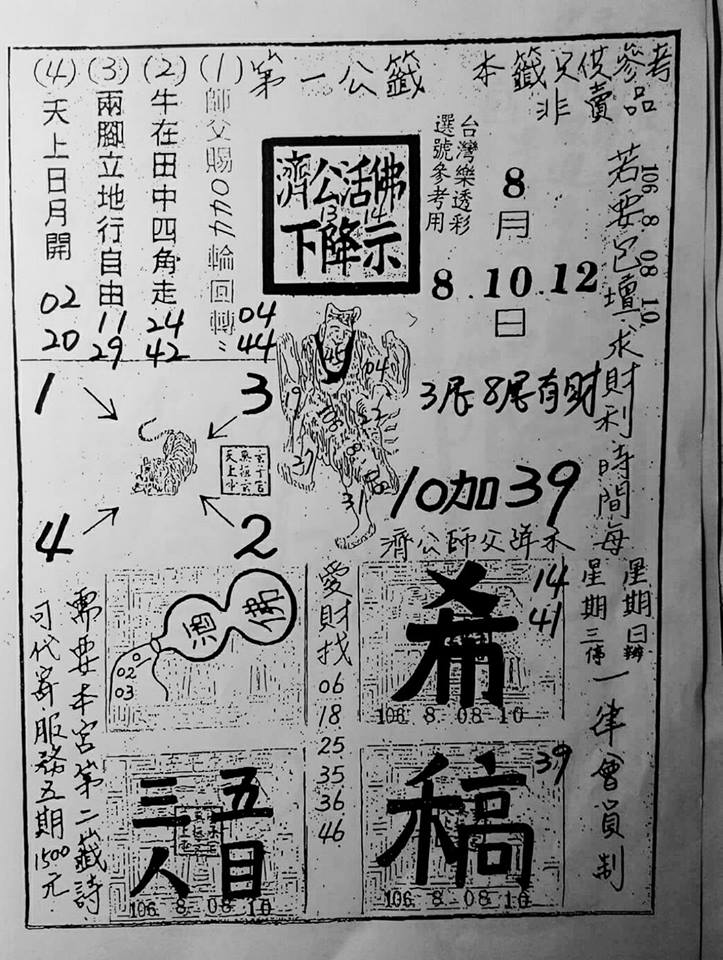 第一公籤
本籤只供參考
非賣品
(1) 師父賜加加O輪回轉
04
44
(2) 牛在田中四角走
24
42
(3) 兩腳立地行自由
11
29
(4) 天上日月開
02
20
濟公活佛
13 14
下降示
台灣樂透彩
選號參考用
8
月
8.10.12
日
106 8 08 10
若要包壇求財利時間每
星期日辦
星期三停
一律會員制
1
3
4
2
45
04
19
22
38
27
31
08
3尾8尾有財
10加39
濟公師父降示
14
41
希
106 8 08 10
愛財找
06
18
25
35
36
46
酒
佛
02
03
39
稿
106 8 08 10
五目
三人
106 8 08 10
需要本宮第二籤詩
可代寄服務五期1500元